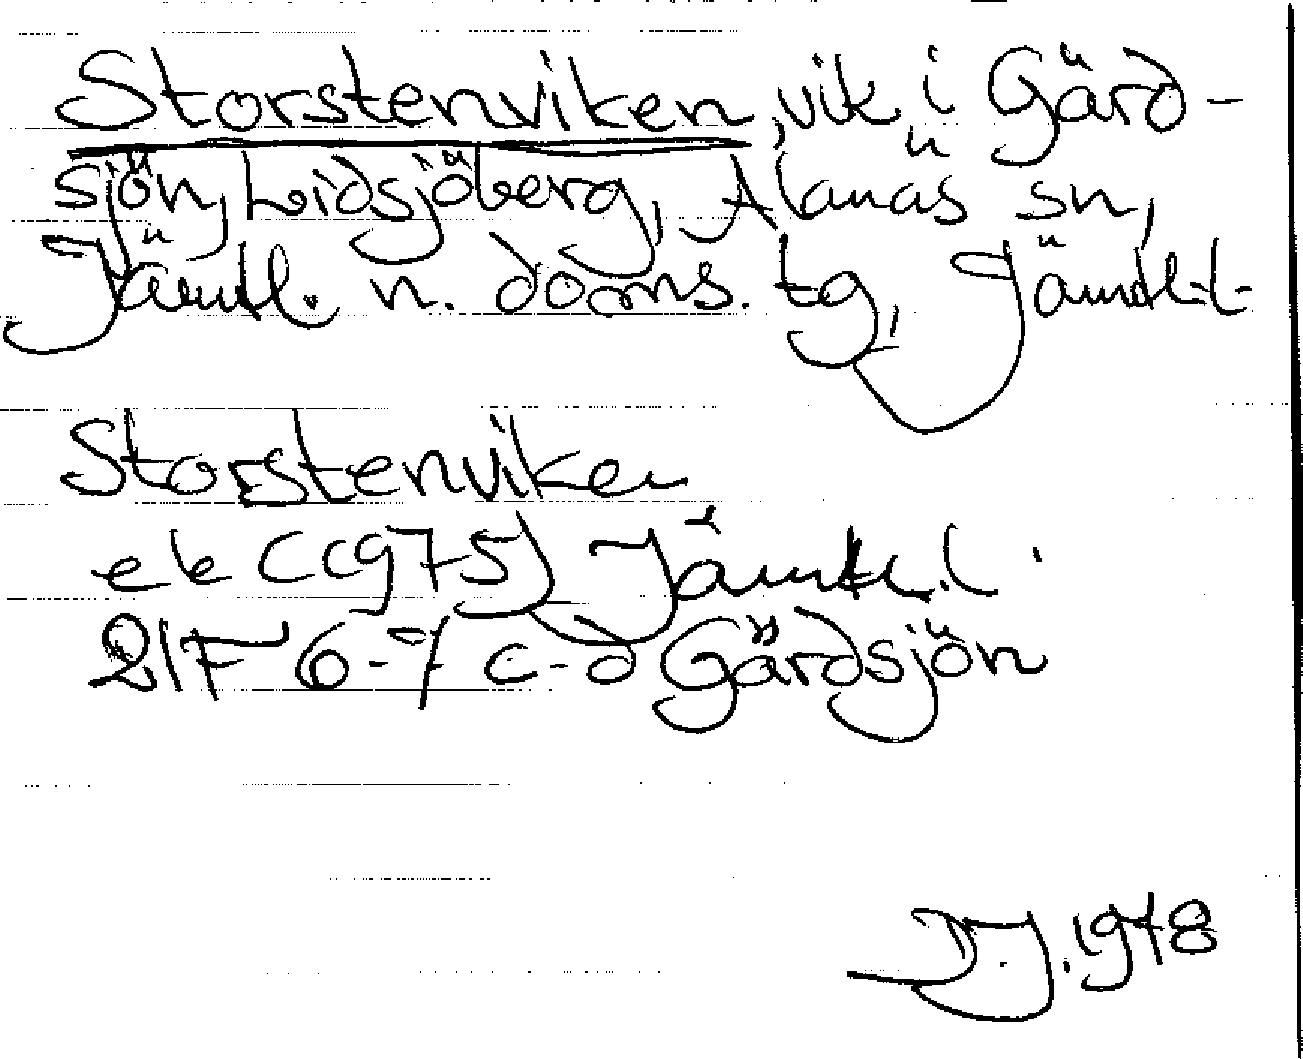 Storstenviken, vik i Gärd-
sjön, Lidsjöberg, Alanäs sn,
Jämtl. n. doms. tg, Jämtl. l.
Storstenviken
ek (1975) Jämtl. l.
21F 6-7 c-d Gärdsjön
D.J. 1978